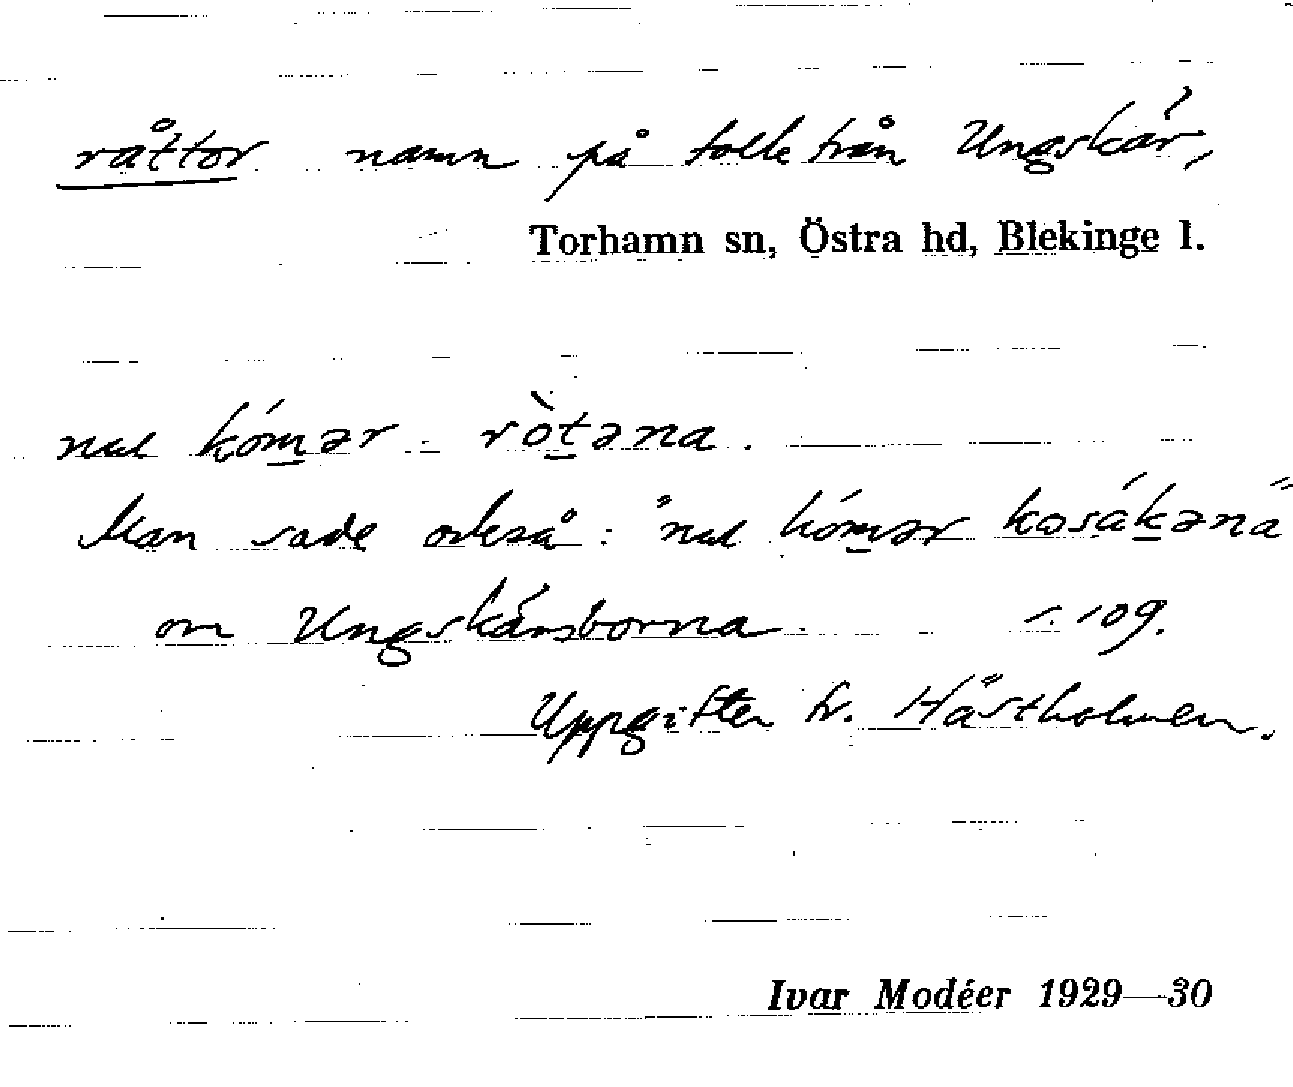 råttor namn på folk från Ungskär,
Torhamn sn, Östra hd, Blekinge l.
nu kómər ròtəna.
Man sade också: "nu kómər kosákəna"
om Ungskärsborna s. 109.
Uppgiften fr. Hästholmen.
Ivar Modéer 1929—30